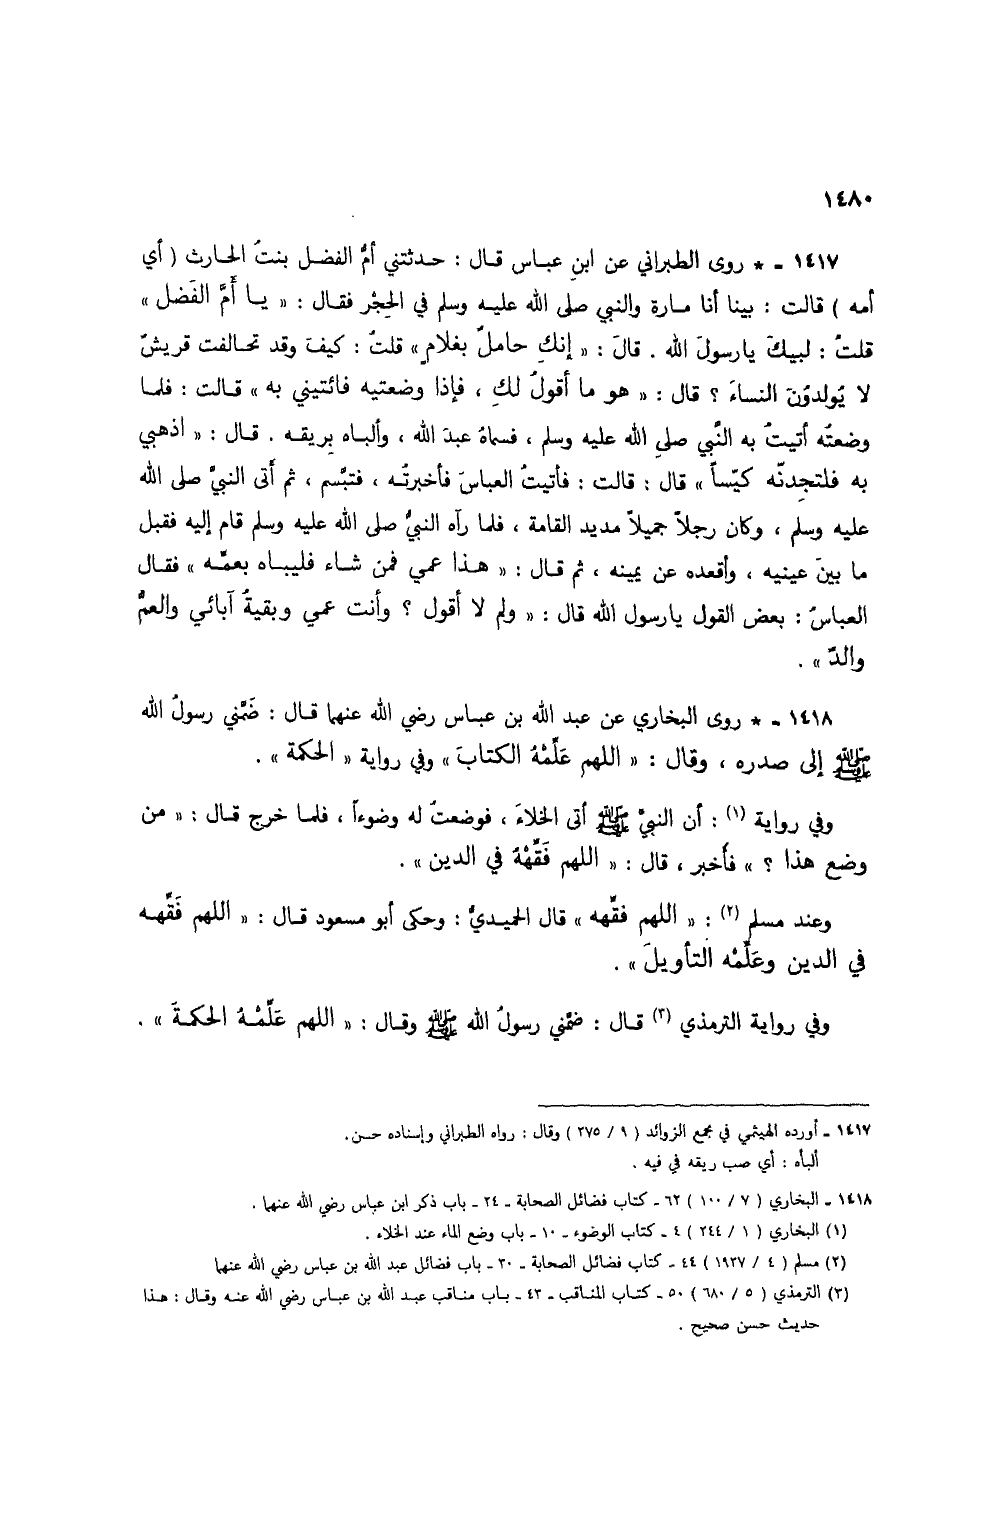 ١٤٨٠
١٤١٧ - * روى الطبراني عن ابنِ عباس قال : حدثتني أمُّ الفضل بنتُ الحارث ( أي
أمه ) قالت : بينا أنا مارة والنبي صلى الله عليه وسلم في الحِجْر فقال : « يا أُمَّ الفَضل »
قلتُ : لبيكَ يارسولَ الله . قالَ : « إنكِ حاملٌ بغلامٍ » قلتُ : كيفَ وقد تحالفت قريشٌ
لا يُولدوُنَ النساءَ ؟ قال : « هو ما أقولُ لكِ ، فإذا وضعتيه فائتيني به » قالت : فلما
وضعتُه أتيتُ به النَّبي صلى الله عليه وسلم ، فسماهُ عبدَ الله ، وألباه بريقه . قال : « اذهبي
به فلتجدِنّه كيّساً » قال : قالت : فأتيتُ العباسَ فأخبرتُه ، فتبَّسم ، ثم أَتى النبيَّ صلى الله
عليه وسلم ، وكان رجلاً جميلاً مديد القامة ، فلما رآه النبيُّ صلى الله عليه وسلم قام إليه فقبل
ما بينَ عينيه ، وأقعده عن يمينه ، ثم قال : « هذا عمي فمن شاء فليباه بعمّه » فقال
العباسُ : بعض القول يارسول الله قال : « ولم لا أقول ؟ وأنت عمي وبقيةُ آبائي والعمُّ
والدّ » .
١٤١٨ - * روى البخاري عن عبد الله بن عباس رضي الله عنهما قال : ضَمَّني رسولُ الله
ﷺ إلى صدره ، وقال : « اللهم عَلِّمْهُ الكتابَ » وفي رواية « الحكمة » .
وفي رواية (١) : أن النبيَّ ﷺ أتى الخلاءَ ، فوضعتُ له وضوءاً ، فلما خرج قال : « من
وضع هذا ؟ » فأُخبر ، قال : « اللهم فَقِّهْهُ في الدين » .
وعند مسلم (٢) : « اللهم فقِّهه » قال الحميديُّ : وحكى أبو مسعود قال : « اللهم فَقِّهه
في الدين وعَلِّمْه التأويلَ » .
وفي رواية الترمذي (٣) قال : ضمَّني رسولُ الله ﷺ وقال : « اللهم عَلِّمْهُ الحكمةَ » .
١٤١٧ - أورده الهيثمي في مجمع الزوائد ( ٩ / ٢٧٥ ) وقال : رواه الطبراني وإسناده حسن .
ألبأه : أي صب ريقه في فيه .
١٤١٨ - البخاري ( ٧ / ١٠٠ ) ٦٢ - كتاب فضائل الصحابة - ٢٤ - باب ذكر ابن عباس رضي الله عنهما .
(١) البخاري ( ١ / ٢٤٤ ) ٤ - كتاب الوضوء - ١٠ - باب وضع الماء عند الخلاء .
(٢) مسلم ( ٤ / ١٩٢٧ ) ٤٤ - كتاب فضائل الصحابة - ٣٠ - باب فضائل عبد الله بن عباس رضي الله عنهما
(٣) الترمذي ( ٥ / ٦٨٠ ) ٥٠ - كتاب المناقب - ٤٣ - باب مناقب عبد الله بن عباس رضي الله عنه وقال : هذا
حديث حسن صحيح .